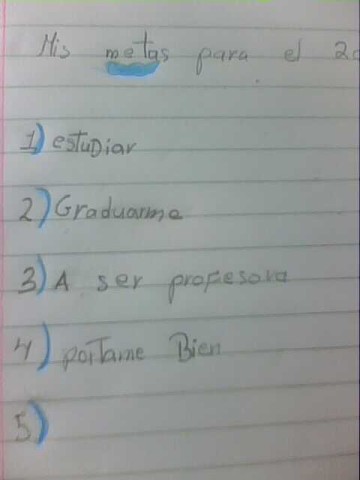 Mis metas para el 20
1) estuDiar
2) Graduarme
3) A ser profesora
4) portame Bien
5)